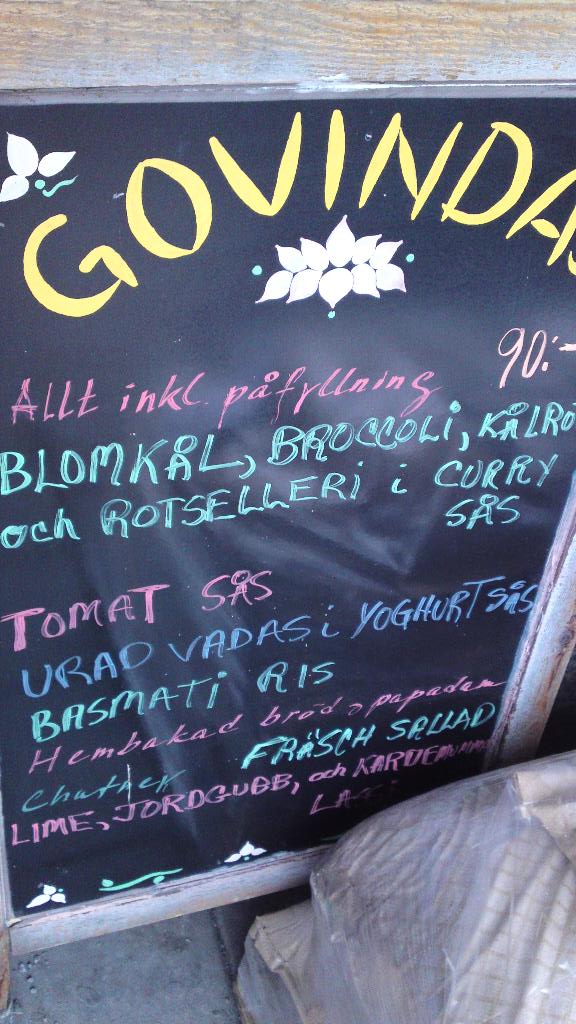 GOVINDAS
90:-
Allt inkl påfyllning
BLOMKÅL, BROCCOLI, KÅLRO
och ROTSELLERI i CURRY
SÅS
TOMAT SÅS
URAD VADAS i YOGHURTSÅS
BASMATI RIS
Hembakad bröd o papadam
FRÄSCH SALLAD
Chatney
LIME, JORDGUBB, och KARDEMUMMA